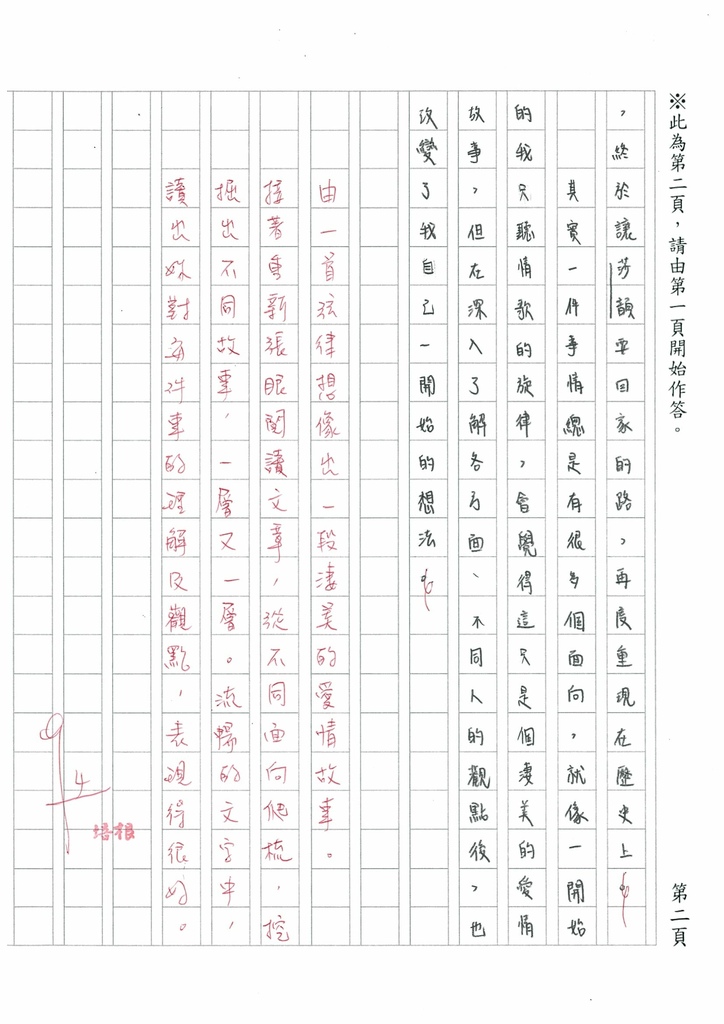 ※此為第二頁，請由第一頁開始作答。
第二頁
，終於讓莎韻平回家的路，再度重現在歷史上
其實一件事情總是有很多個面向，就像一開始
的我只聽情歌的旋律，會覺得這只是個淒美的愛情
故事，但在深入了解各方面、不同人的觀點後，也
改變了我自己一開始的想法
由一首弦律想像出一段淒美的愛情故事。
接著重新張眼閱讀文章，從不同面向爬梳，挖
掘出不同故事，一層又一層。流暢的文字中，
讀出妳對每件事的理解及觀點，表現得很好。
94
培根